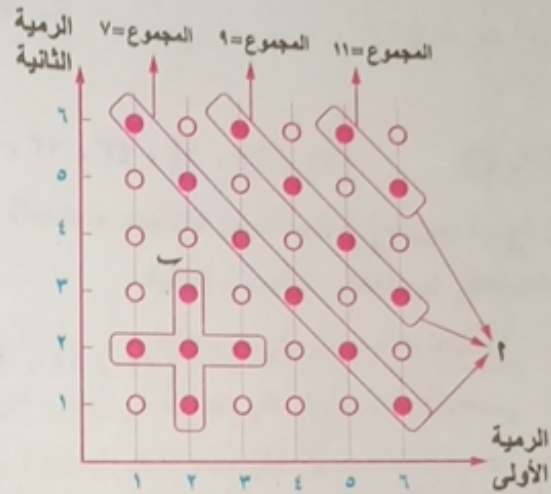 الرمية
الثانية
المجموع=٧
المجموع=٩
المجموع=١١
٦
٥
٤
٣
٢
١
ب
أ
١ ٢ ٣ ٤ ٥ ٦
الرمية
الأولى